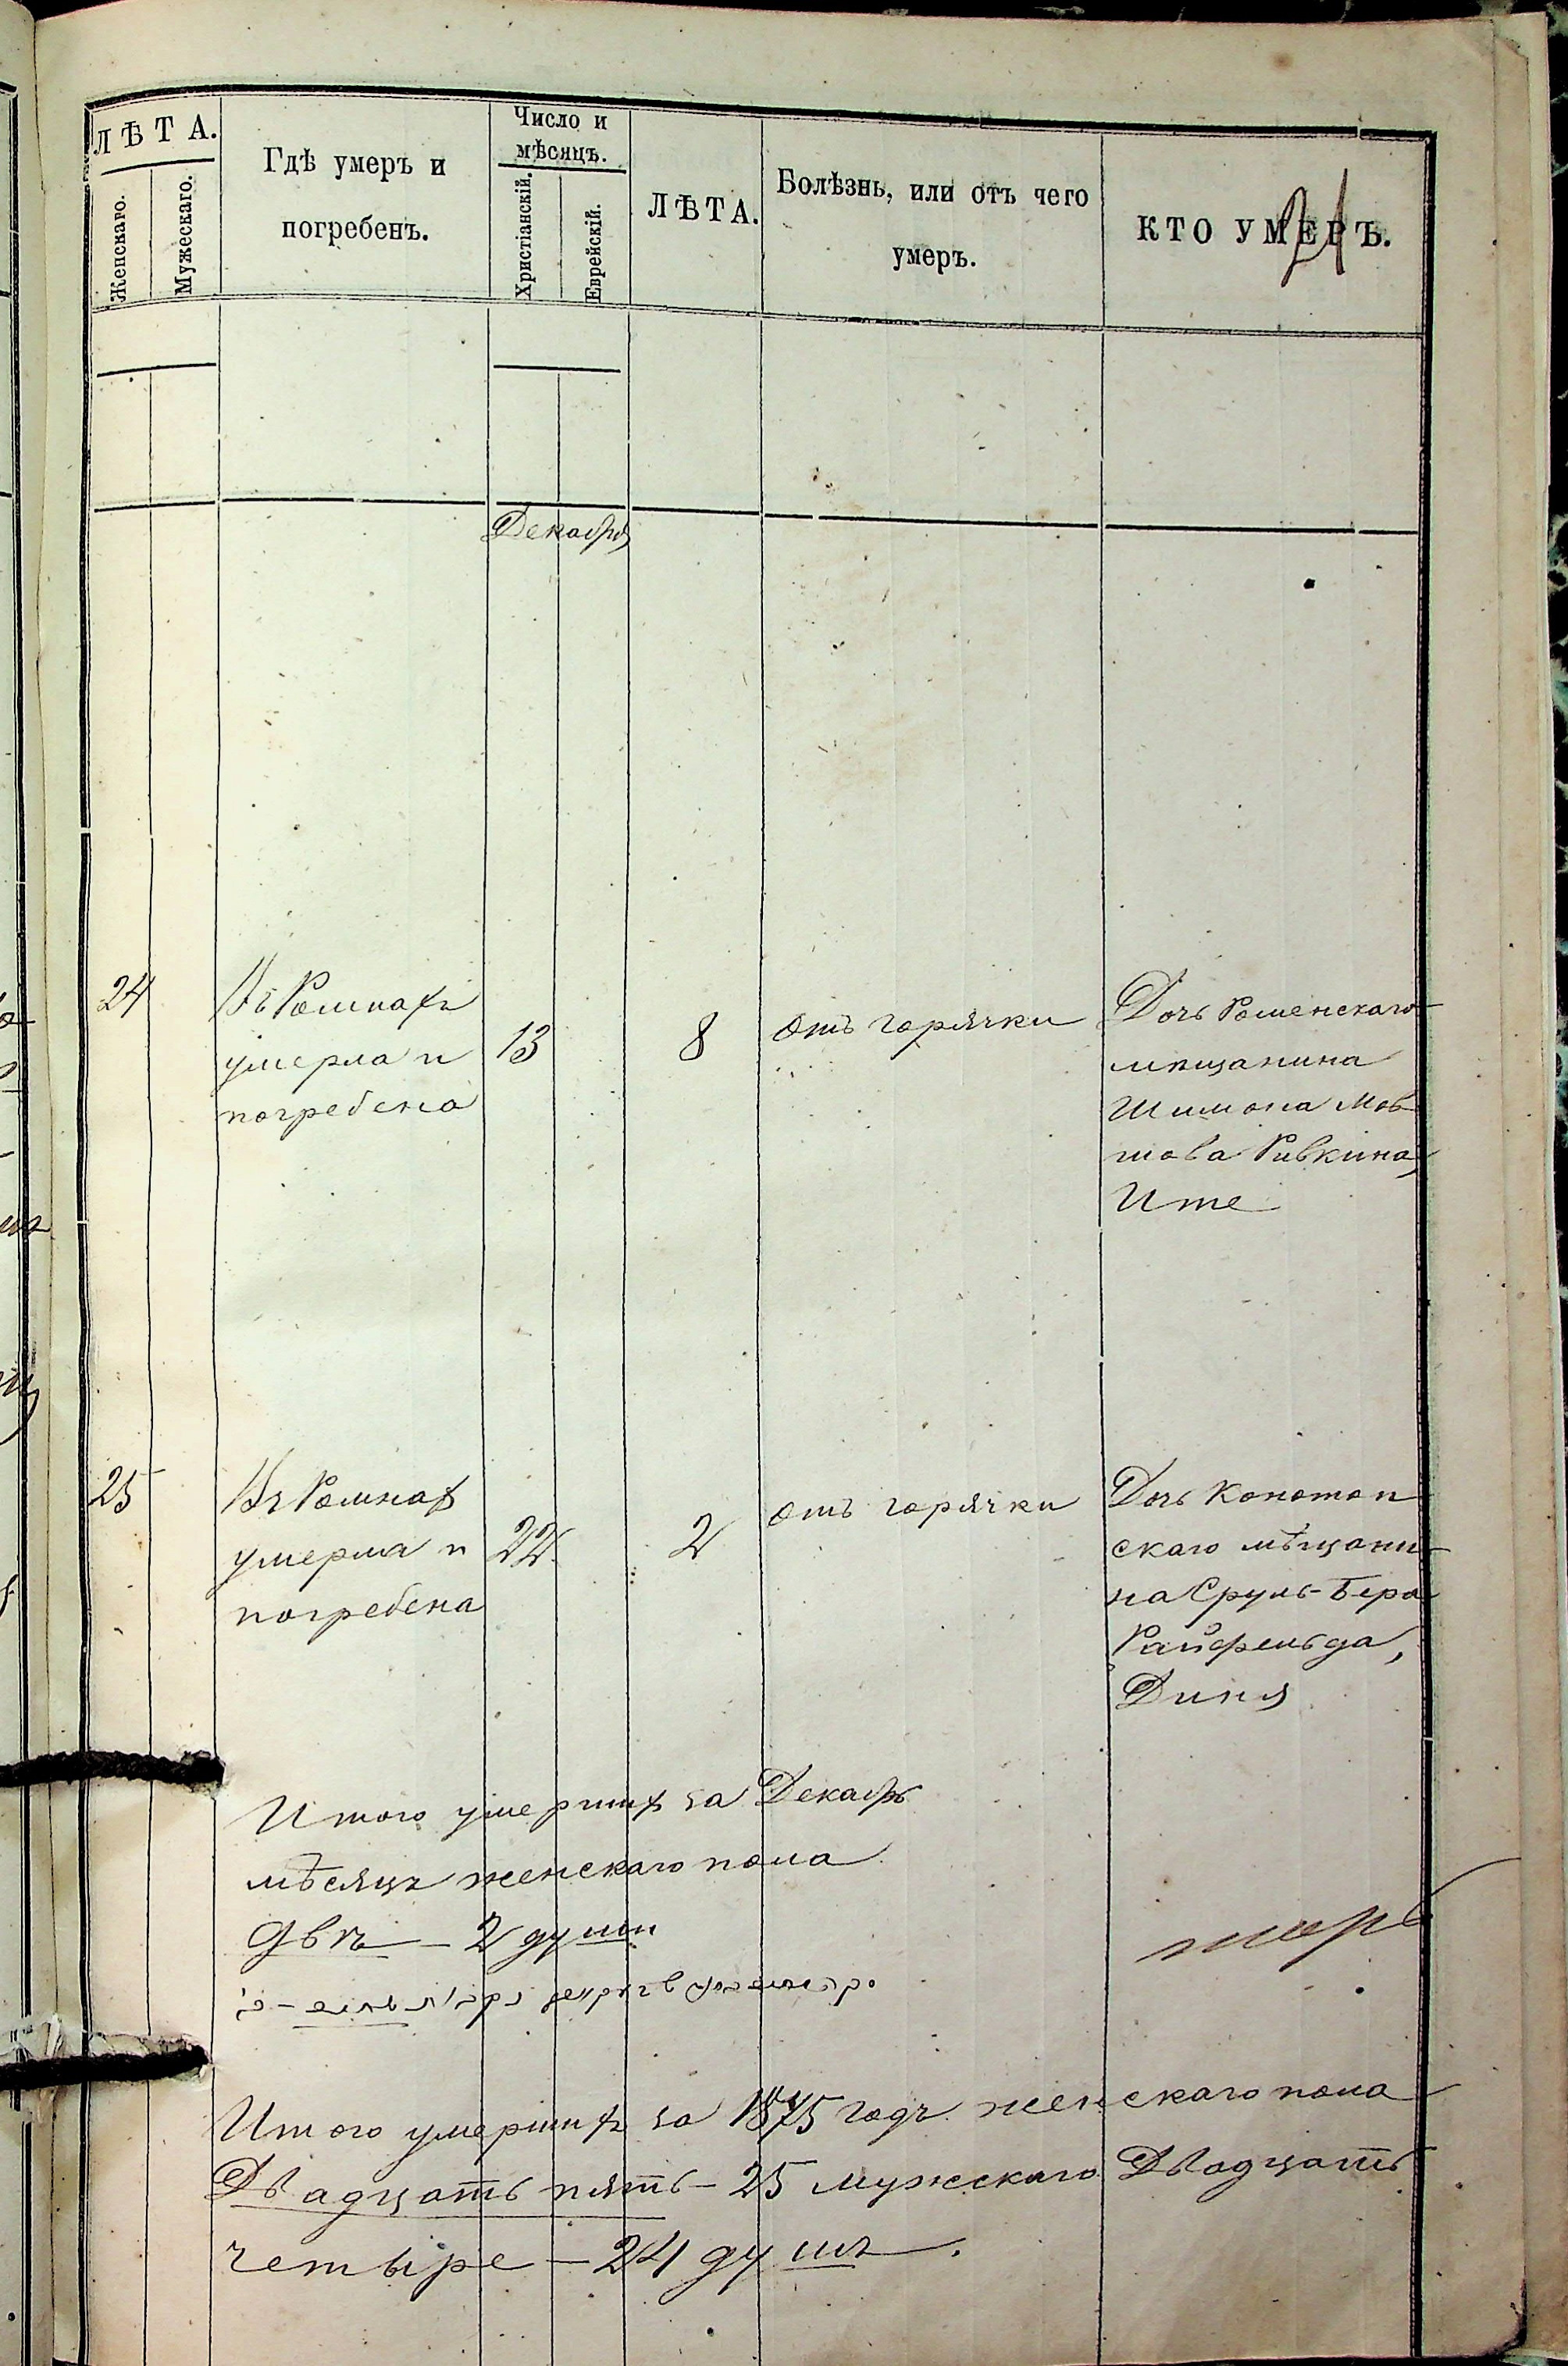 ЛѢТА.
Женскаго.
Мужескаго.
Гдѣ умеръ и
погребенъ.
Число и
мѣсяцъ.
Христіанскій.
Еврейскій.
ЛѢТА.
Болѣзнь, или отъ чего
умеръ.
КТО УМЕРЪ.
Декабря
24
Въ Ромнахъ
умерла и
погребена
13
8
Отъ горячки
Дочь Роменскаго
мѣщанина
Шимона Мов-
шова Ривкина,
Ите
25
Въ Ромнах
умерла и
погребена
22
2
отъ горячки
Дочь Конотоп
скаго мѣщани-
на Сруль-Бера
Райфельда,
Диня
Итого умерших за Декабрь
мѣсяцъ женскаго пола
Двѣ — 2 души
Итого умершихъ за 1875 годъ женскаго пола
Двадцать пять — 25 мужскаго Двадцать
четыре — 24 душъ.